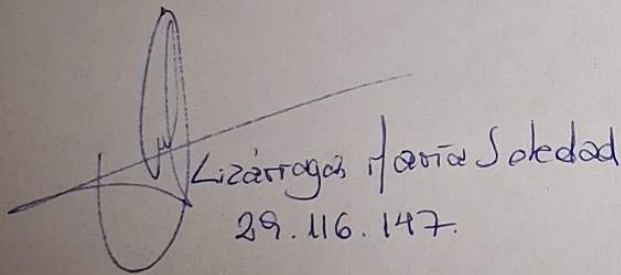 Lizárraga María Soledad
29.116.147.